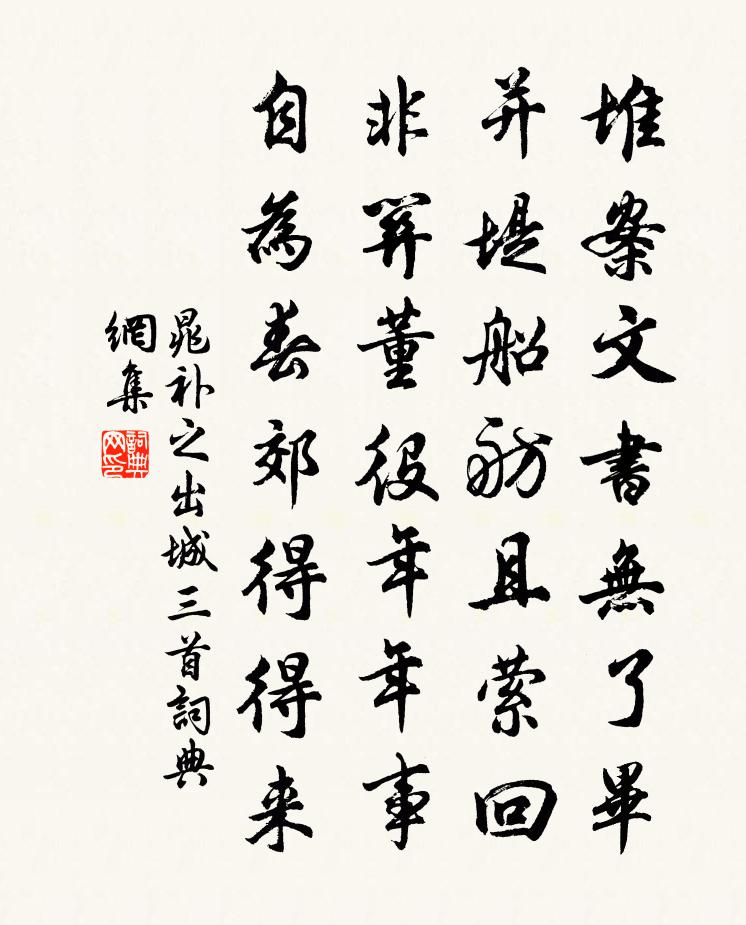 堆案文書無了畢
并堤船舫且縈回
非關董役年年事
自為春郊得得来
晁补之出城三首詞典
網集
詞典
网印